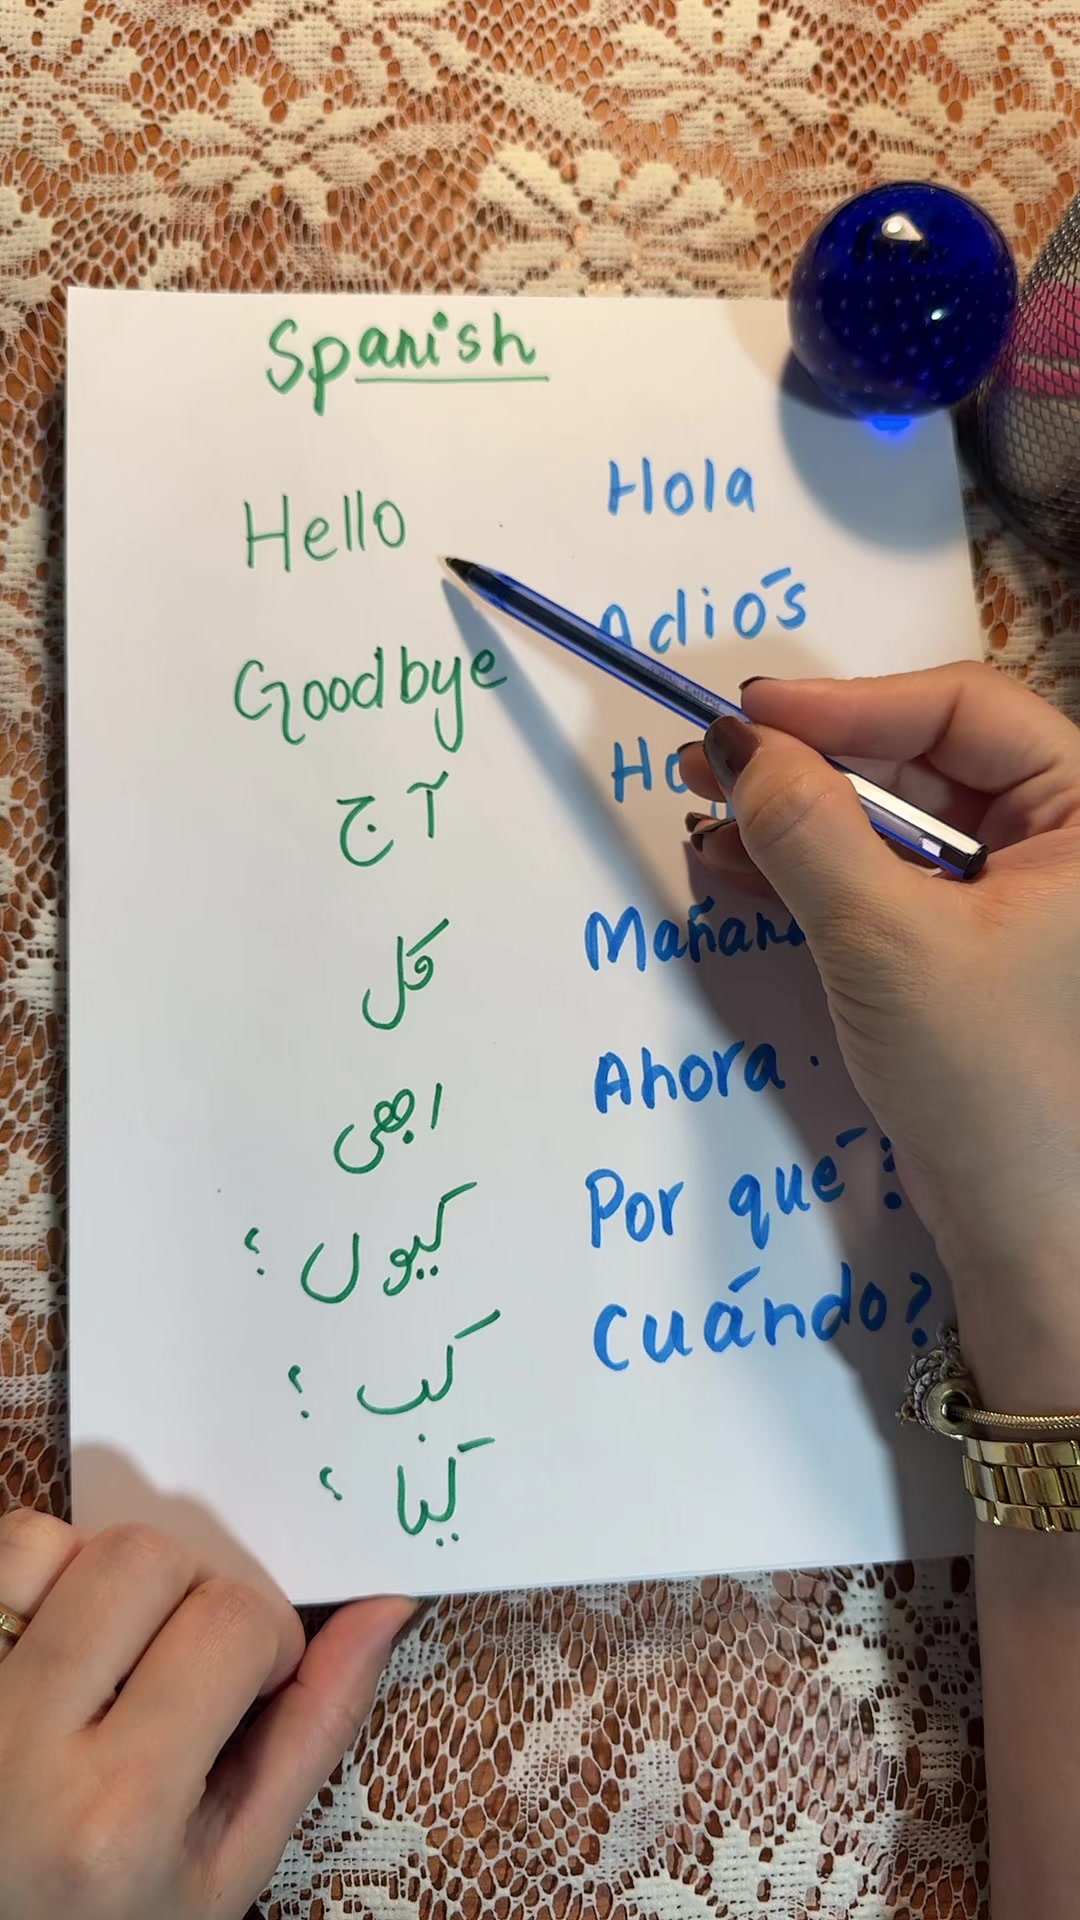 Spanish
Hello Hola
Goodbye Adiós
آج
کل Mañana
ابھی Ahora.
کیوں ؟ Por qué ?
کب ؟ Cuándo?
کیا ؟